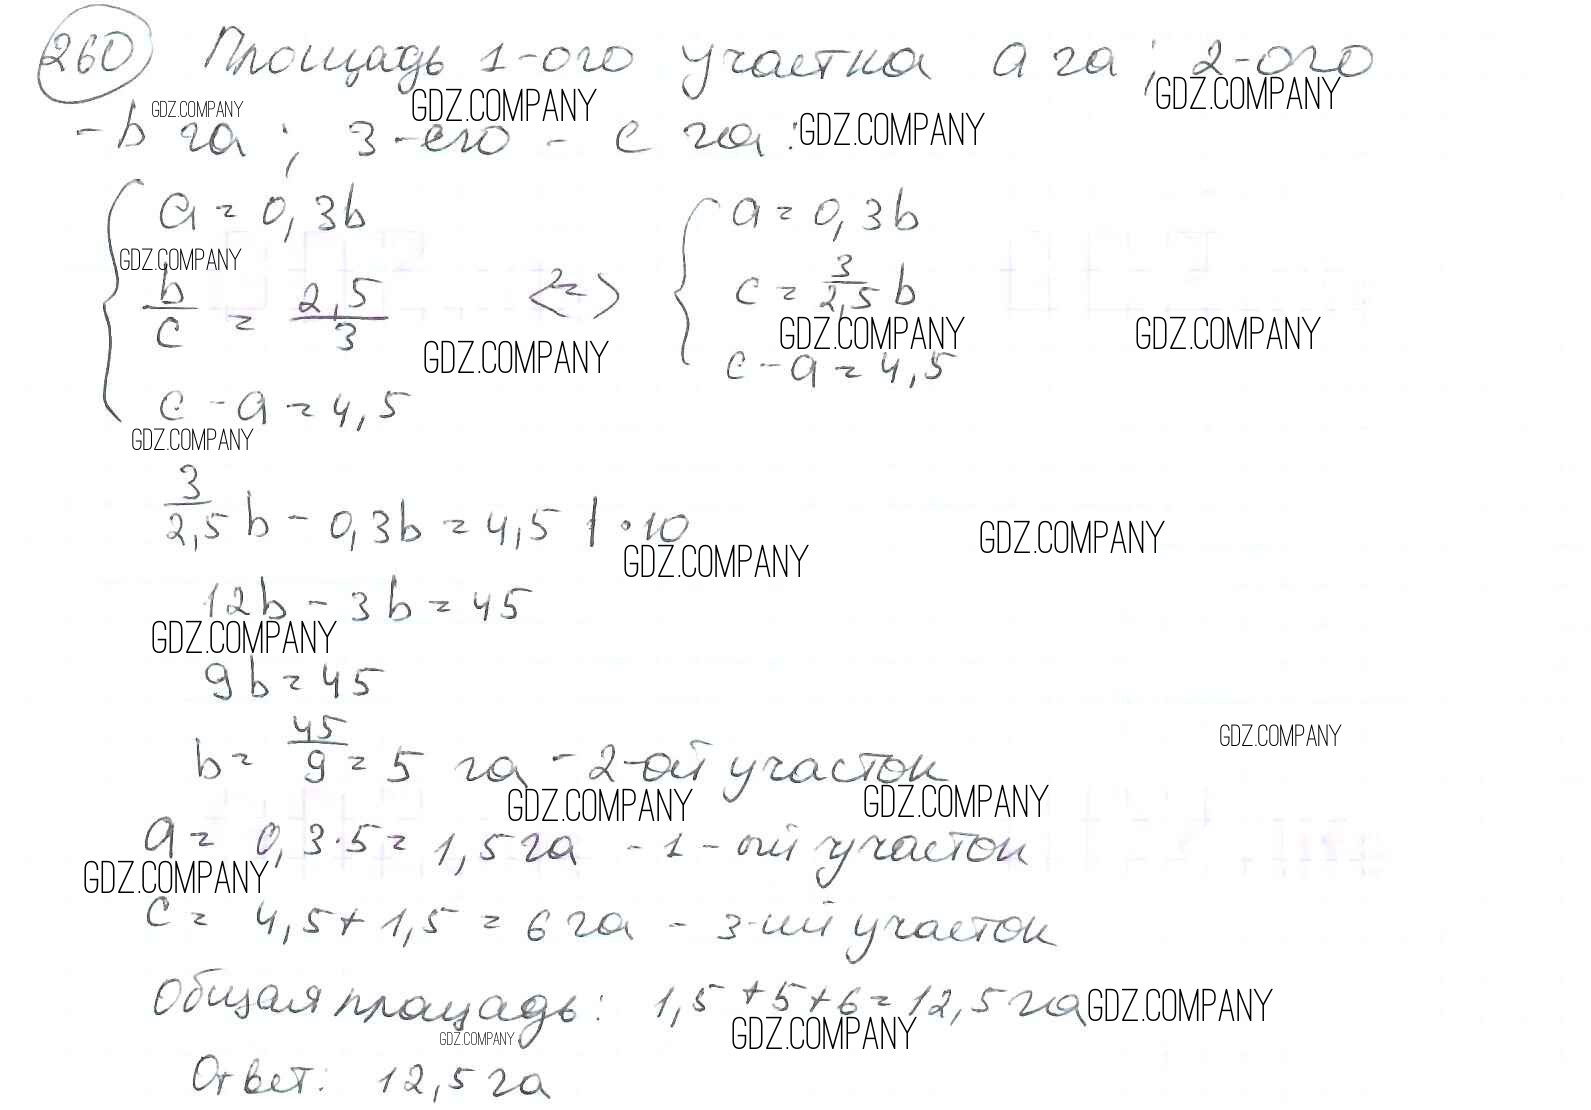 260 Площадь 1-ого участка a га; 2-ого
GDZ.COMPANY GDZ.COMPANY GDZ.COMPANY
- b га; 3-его - c га: GDZ.COMPANY
a = 0,3b a = 0,3b
GDZ.COMPANY
b/c = 2,5/3 <=> c = 3/2,5 b
GDZ.COMPANY GDZ.COMPANY GDZ.COMPANY
c - a = 4,5 c - a = 4,5
GDZ.COMPANY
3/2,5 b - 0,3b = 4,5 | · 10
GDZ.COMPANY GDZ.COMPANY
12b - 3b = 45
GDZ.COMPANY
9b = 45
GDZ.COMPANY
b = 45/9 = 5 га - 2-ой участок
GDZ.COMPANY GDZ.COMPANY
a = 0,3·5 = 1,5 га - 1-ый участок
GDZ.COMPANY
c = 4,5 + 1,5 = 6 га - 3-ий участок
Общая площадь: 1,5 + 5 + 6 = 12,5 га GDZ.COMPANY
GDZ.COMPANY GDZ.COMPANY
Ответ: 12,5 га